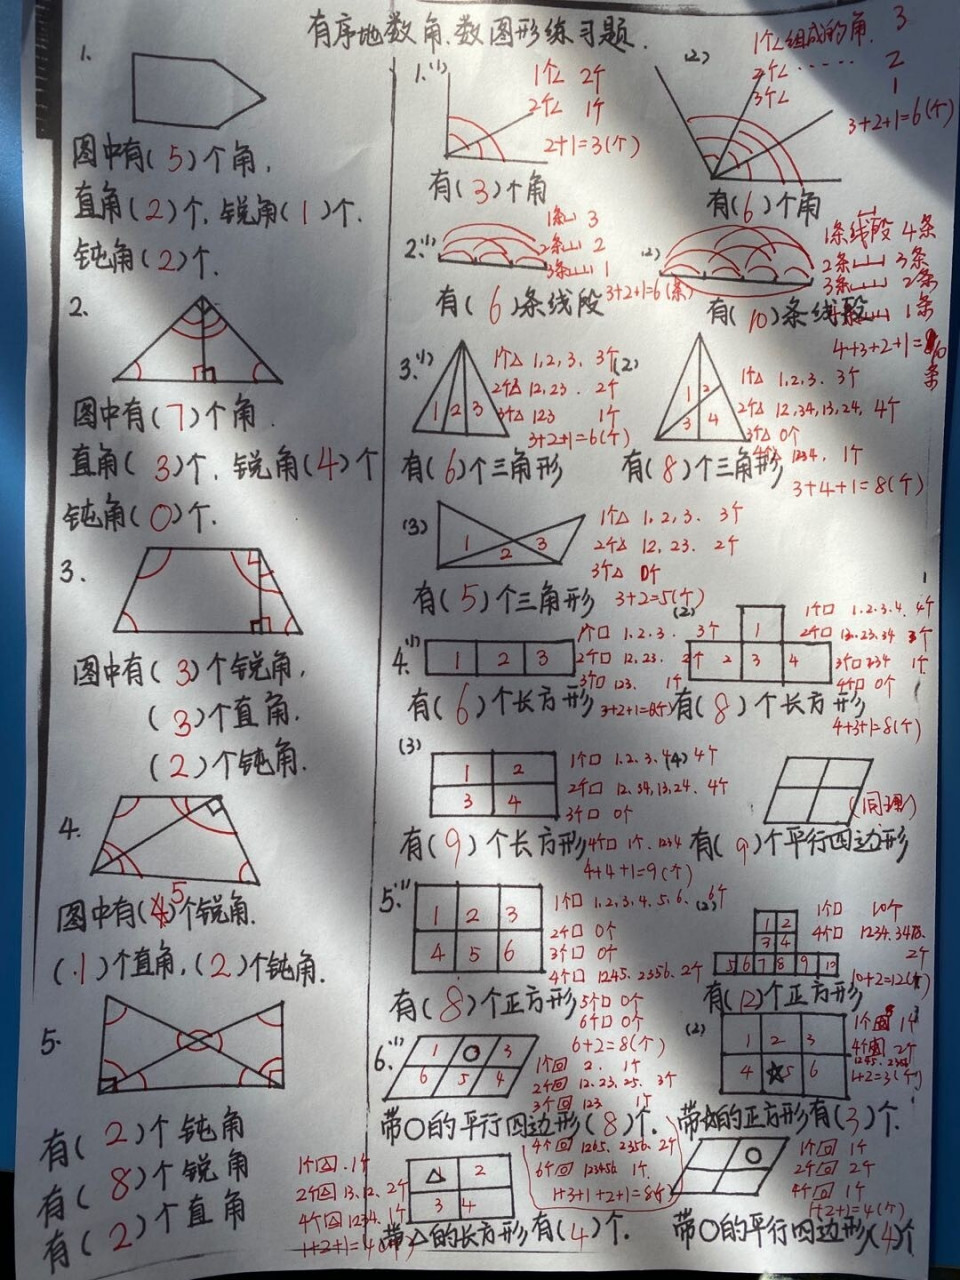 有序地数角、数图形练习题.
1.
图中有(5)个角,
直角(2)个,锐角(1)个,
钝角(2)个.
2.
图中有(7)个角.
直角(3)个,锐角(4)个
钝角(0)个.
3.
图中有(3)个锐角,
(3)个直角,
(2)个钝角.
4.
图中有(5)个锐角.
(1)个直角,(2)个钝角.
5.
有(2)个钝角
有(8)个锐角
有(2)个直角
1.(1)
1个∠ 2个
2个∠ 1个
2+1=3(个)
有(3)个角
(2)
1个∠组成的角. 3
2个∠ ...... 2
3个∠ 1
3+2+1=6(个)
有(6)个角
2.(1)
1条 3
2条 2
3条 1
3+2+1=6(条)
有(6)条线段
(2)
1条线段 4条
2条 3条
3条 2条
1条
4+3+2+1=10条
有(10)条线段
3.(1)
1 2 3
1个△ 1,2,3. 3个
2个△ 12,23. 2个
3个△ 123 1个
3+2+1=6(个)
有(6)个三角形
(2)
1 2
3 4
1个△ 1,2,3. 3个
2个△ 12,34,13,24, 4个
3个△ 0个
4个△ 1234. 1个
3+4+1=8(个)
有(8)个三角形
(3)
1 2 3
1个△ 1,2,3. 3个
2个△ 12,23. 2个
3个△ 0个
3+2=5(个)
有(5)个三角形
4.(1)
1 2 3
1个口 1.2.3. 3个
2个口 12,23. 2个
3个口 123. 1个
3+2+1=6(个)
有(6)个长方形
(2)
1
2 3 4
1个口 1.2.3.4. 4个
2个口 13.23.34 3个
3个口 234 1个
4个口 0个
4+3+1=8(个)
有(8)个长方形
(3)
1 2
3 4
1个口 1.2.3,4 4个
2个口 12,34,13,24. 4个
3个口 0个
4个口 1个.1234
4+4+1=9(个)
有(9)个长方形
(4)
(同理)
有(9)个平行四边形
5.(1)
1 2 3
4 5 6
1个口 1,2,3,4,5,6. 6个
2个口 0个
3个口 0个
4个口 1245,2356. 2个
5个口 0个
6个口 0个
6+2=8(个)
有(8)个正方形
(2)
1 2
3 4
5 6 7 8 9 10
1个口 10个
4个口 1234.3478.
2个
10+2=12(个)
有(12)个正方形
6.(1)
1 3
6 5 4
1个 2. 1个
2个 12.23.25. 3个
3个 123 1个
4个 1265,2356. 2个
6个 123456 1个.
1+3+1+2+1=8(个)
带○的平行四边形(8)个.
(2)
1 2 3
4 5 6
1个 1个
4个 2个
1245,2356
1+2=3(个)
带☆的正方形有(3)个.
1个 1个
2个 13,12, 2个
4个 1234. 1个
1+2+1=4(个)
2
3 4
带△的长方形有(4)个.
1个 1个
2个 2个
4个 1个
1+2+1=4(个)
带○的平行四边形(4)个